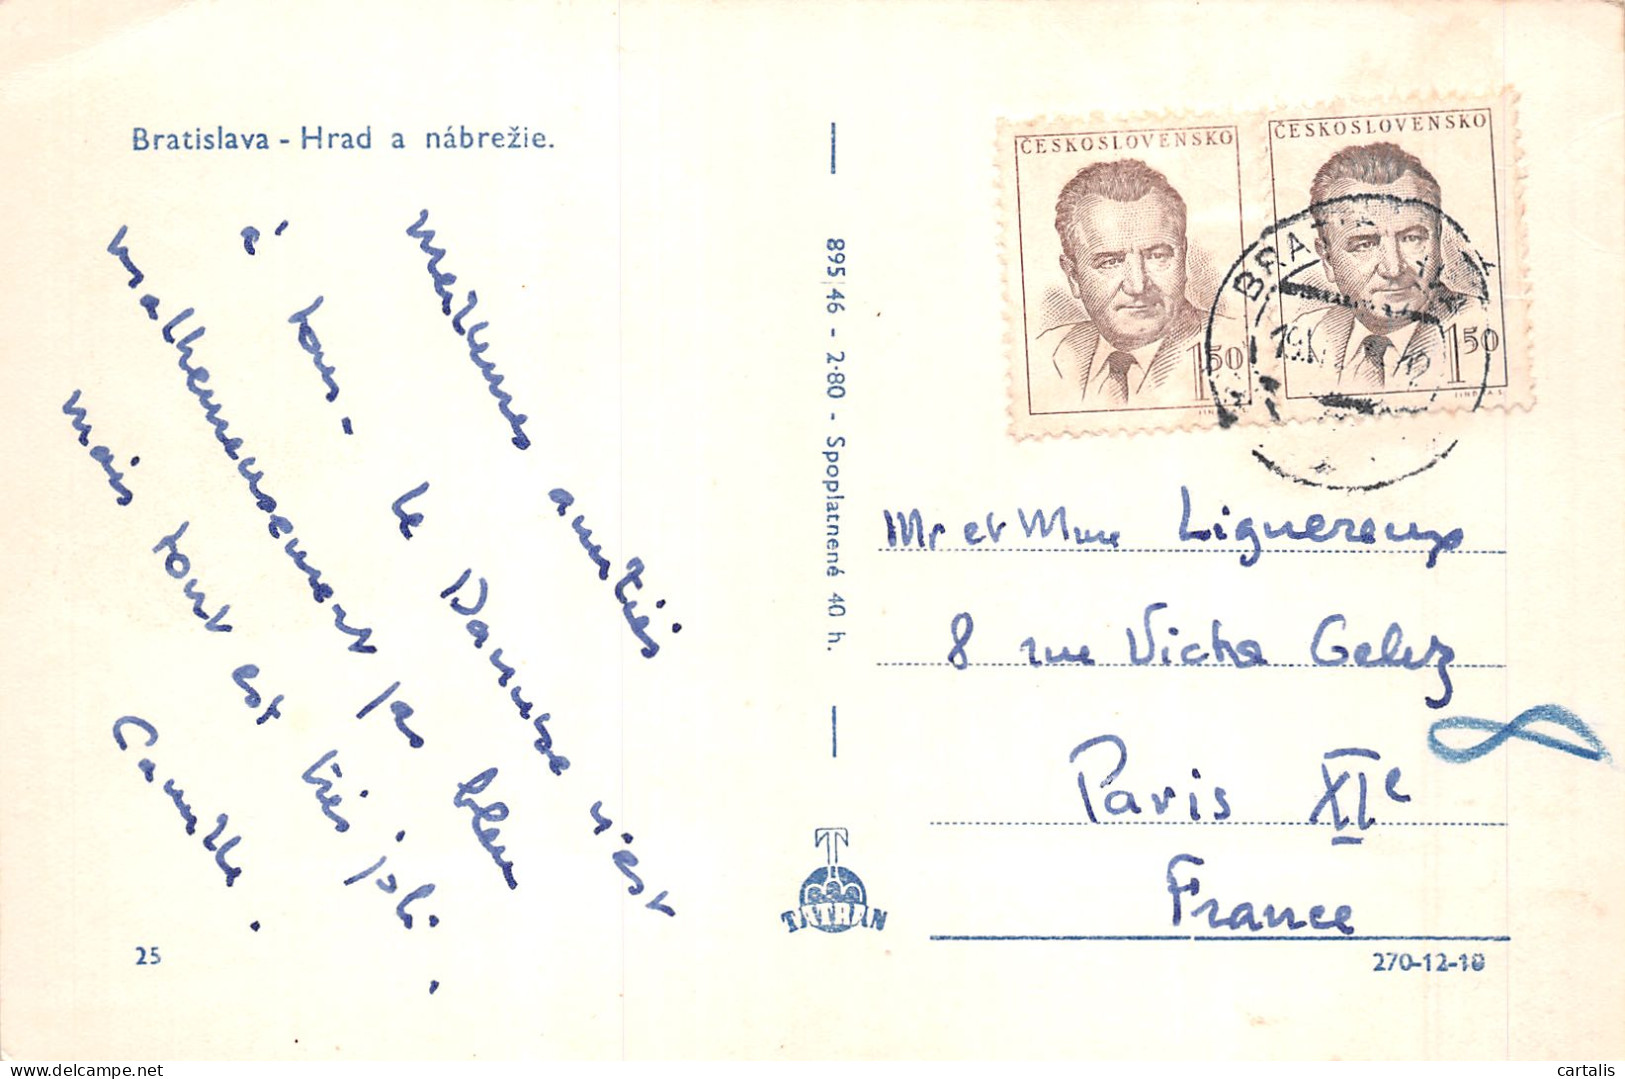 Bratislava - Hrad a nábrežie.
meilleures amitiés
à tous - le Danube n'est
malheureusement pas bleu
mais tout est très joli.
Camille.
25
895|46 - 2·80 - Spoplatnené 40 h.
TATRAN
ČESKOSLOVENSKO
1 50
ČESKOSLOVENSKO
1 50
Mr et Mme Liguereux
8 rue Victor Gelez
Paris XIe
France
270-12-10
www.delcampe.net
cartalis